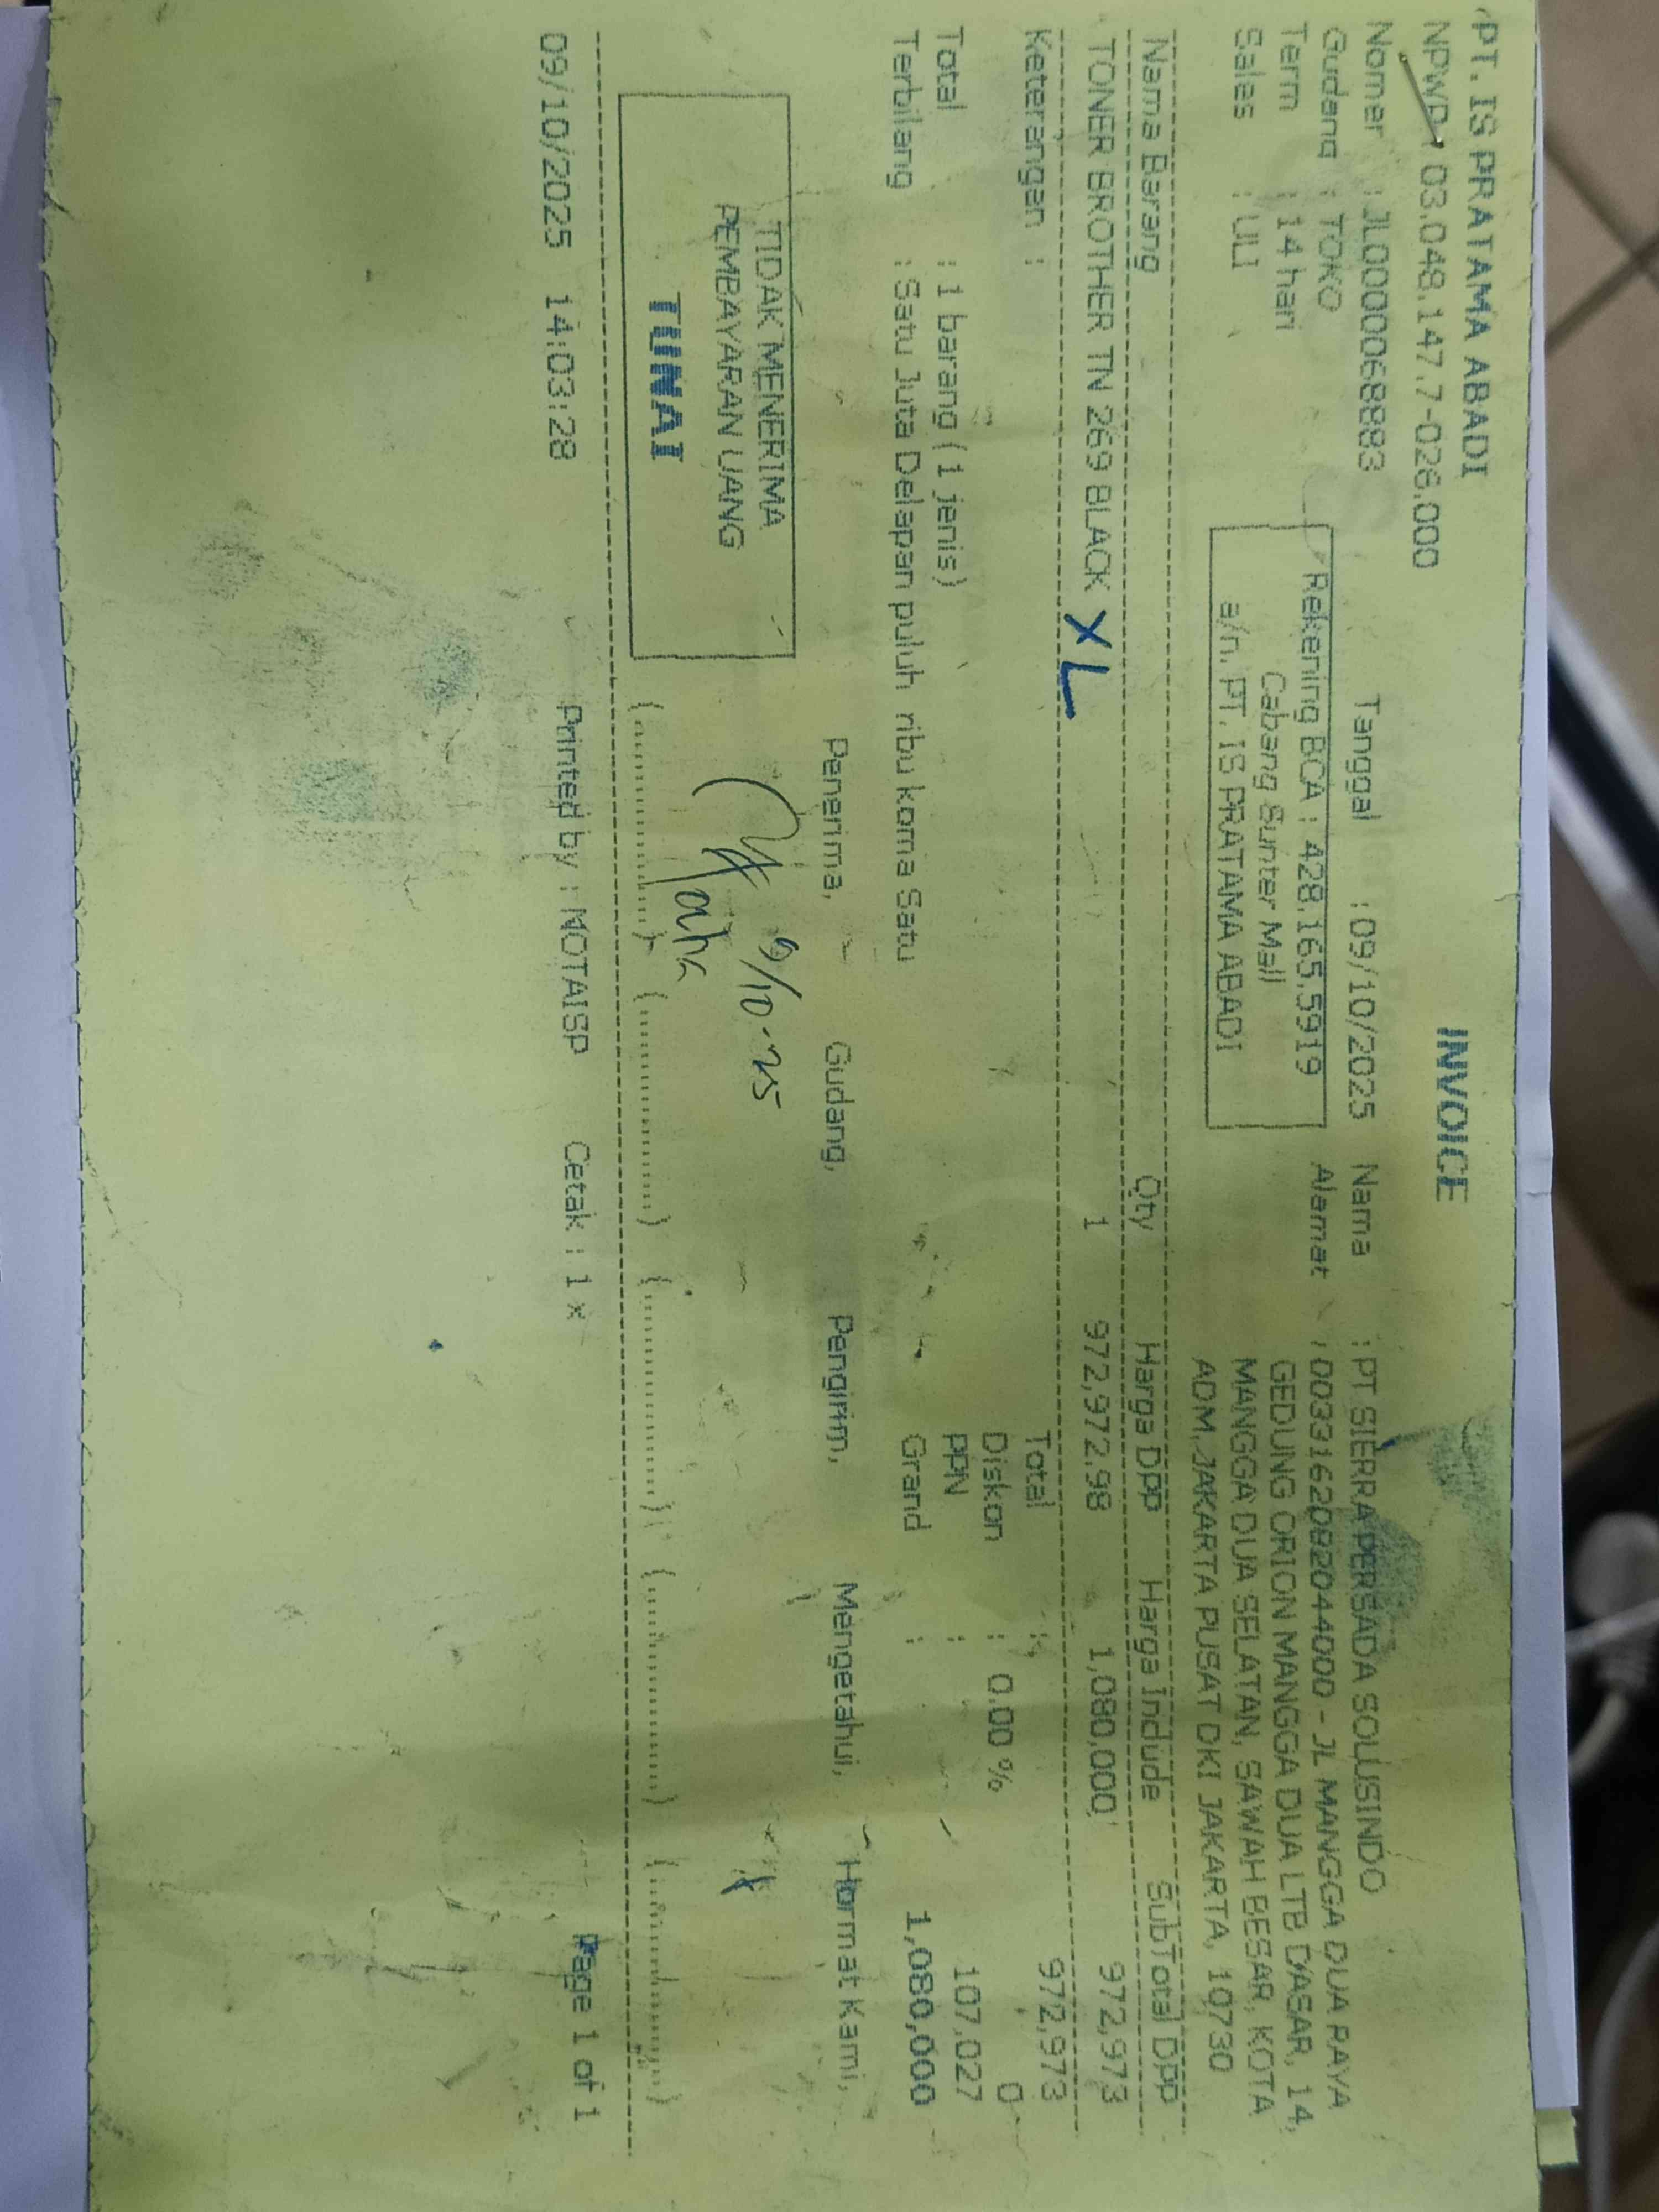 PT. IS PRATAMA ABADI
INVOICE
NPWP : 03.048.147.7-026.000
Nomer : JL000068883
Tanggal : 09/10/2025
Nama : PT SIERRA PERSADA SOLUSINDO
Gudang : TOKO
Rekening BCA : 428.165.5919
Alamat : 0033162082044000 - JL MANGGA DUA RAYA
Term : 14 hari
Cabang Sunter Mall
GEDUNG ORION MANGGA DUA LTB DASAR, 14,
Sales : ULI
a/n. PT. IS PRATAMA ABADI
MANGGA DUA SELATAN, SAWAH BESAR, KOTA
ADM. JAKARTA PUSAT DKI JAKARTA, 10730
Nama Barang Qty Harga DPP Harga Include SubTotal DPP
TONER BROTHER TN 269 BLACK XL 1 972,972.98 1,080,000 972,973
Keterangan :
Total : 972,973
Diskon : 0.00 % 0
Total : 1 barang (1 jenis)
PPN : 107,027
Terbilang : Satu Juta Delapan puluh ribu koma Satu
Grand : 1,080,000
Penerima, Gudang, Pengirim, Mengetahui, Hormat Kami,
TIDAK MENERIMA
PEMBAYARAN UANG
TUNAI
9/10-25
09/10/2025 14:03:28 Printed by : NOTAISP Cetak : 1 x Page 1 of 1